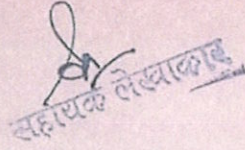 सहायक लेखाकार